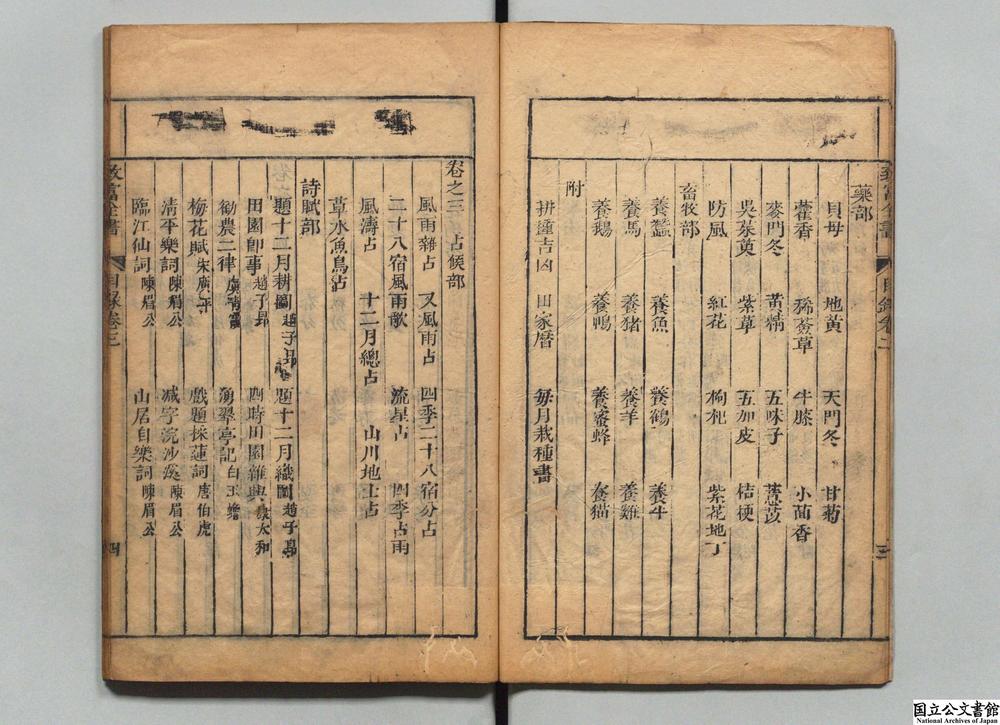 致富全書 目錄卷二 三
藥部
貝母 地黃 天門冬 甘菊
藿香 豨薟草 牛膝 小茴香
麥門冬 黃精 五味子 薏苡
吳茱萸 紫草 五加皮 桔梗
防風 紅花 枸杞 紫花地丁
畜牧部
養蠶 養魚 養鶴 養牛
養馬 養猪 養羊 養雞
養鵝 養鴨 養蜜蜂 養猫
附
拼㨿吉凶 田家曆 每月栽種書
卷之三 占候部
風雨雜占 又風雨占 四季二十八宿分占
二十八宿風雨歌 流星占 四季占雨
風濤占 十二月總占 山川地土占
草水魚鳥占
詩賦部
題十二月耕圖 趙子昂 題十二月織圖 趙子昂
田園卽事 趙子昂 四時田園雜興 大和
勸農二律 虞 湧翠亭記 白玉蟾
梅花賦 朱廣平 戲題採蓮詞 唐伯虎
清平樂詞 陳眉公 减字浣沙溪 陳眉公
臨江仙詞 陳眉公 山居自樂詞 陳眉公
致富全書 目錄卷三 四
国立公文書館
National Archives of Japan